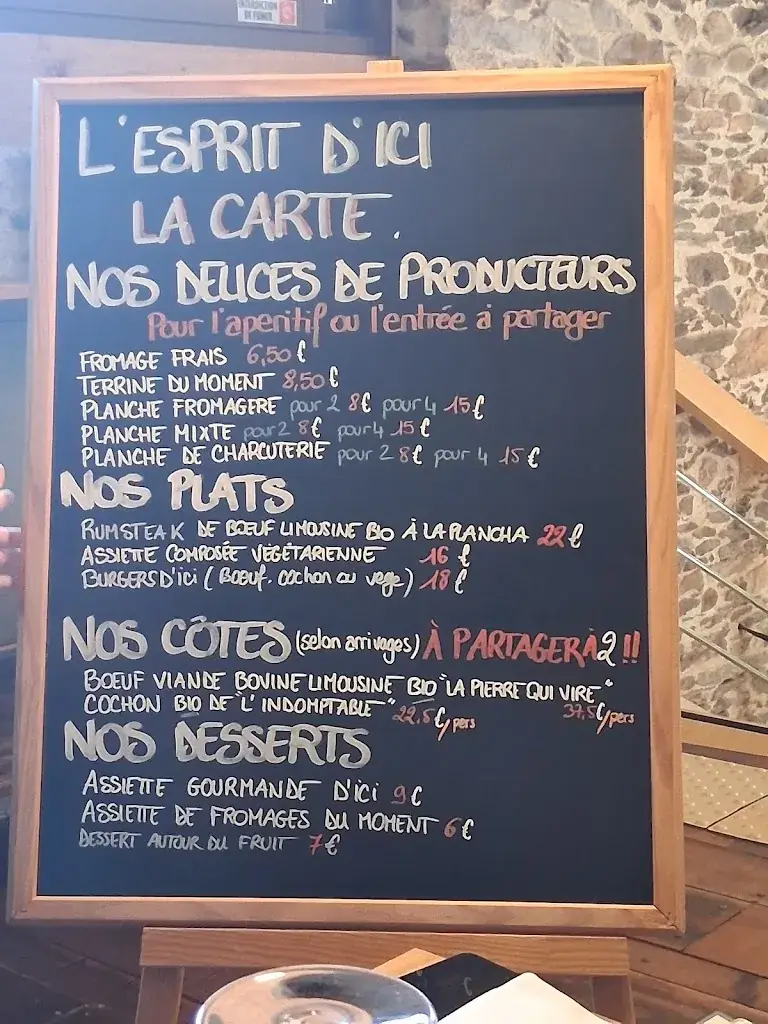 INTERDICTION
DE FUMER
L'ESPRIT D'ICI
LA CARTE.
NOS DELICES DE PRODUCTEURS
Pour l'aperitif ou l'entrée à partager
FROMAGE FRAIS 6,50 €
TERRINE DU MOMENT 8,50 €
PLANCHE FROMAGERE pour 2 8€ pour 4 15€
PLANCHE MIXTE pour 2 8€ pour 4 15€
PLANCHE DE CHARCUTERIE pour 2 8€ pour 4 15€
NOS PLATS
RUMSTEAK DE BŒUF LIMOUSINE BIO À LA PLANCHA 22€
ASSIETTE COMPOSÉE VEGÉTARIENNE 16 €
BURGERS D'ICI (Bœuf, cochon ou vege) 18€
NOS CÔTES (selon arrivages) À PARTAGER À 2 !!
BOEUF VIANDE BOVINE LIMOUSINE BIO "LA PIERRE QUI VIRE" 37,5€/pers
COCHON BIO DE L'INDOMPTABLE" 22,5€/pers
NOS DESSERTS
ASSIETTE GOURMANDE D'ICI 9€
ASSIETTE DE FROMAGES DU MOMENT 6€
DESSERT AUTOUR DU FRUIT 7€